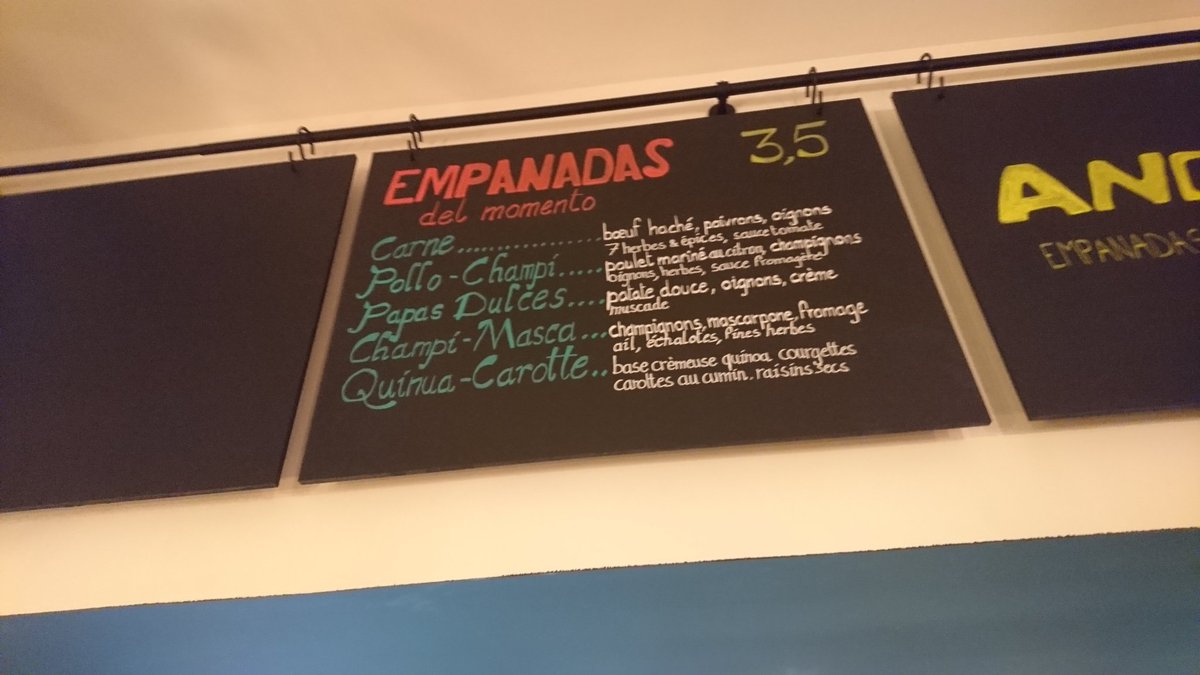 EMPANADAS 3,5
del momento
Carne................boeuf haché, poivrons, oignons
7 herbes & épices, sauce tomate
Pollo-Champi.....poulet mariné au citron, champignons
oignons, herbes, sauce fromagère
Papas Dulces....patate douce, oignons, crème
muscade
Champi-Masca...champignons, mascarpone, fromage
ail, échalotes, fines herbes
Quinua-Carotte..base crèmeuse quinoa courgettes
carottes au cumin. raisins secs
AND
EMPANADAS